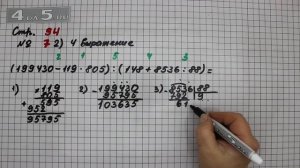 Стр. 94
№ 7 2) 4 Выражение
2 1 5 4 3
(199430-119·805):(148+8536:88)=
1) 119 2) -199430 3) -8536|88
805 95795 792 9
+595 103635 61
952
95795